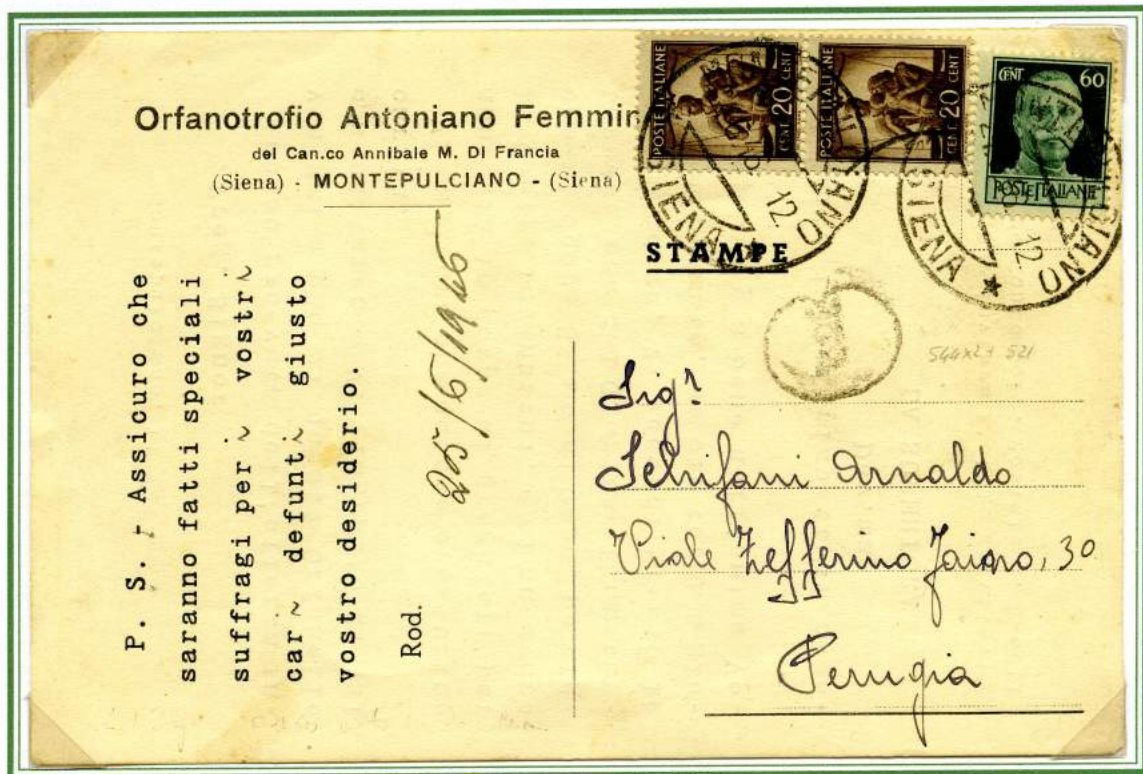 Orfanotrofio Antoniano Femmin
del Can.co Annibale M. Di Francia
(Siena) - MONTEPULCIANO - (Siena)
POSTE ITALIANE
CENT 20 CENT
POSTE ITALIANE
CENT 20 CENT
CENT 60
POSTE ITALIANE
SIENA
12
SIENA
12
STAMPE
P. S. - Assicuro che
saranno fatti speciali
suffragi per i vostri
cari defunti giusto
vostro desiderio.
Rod.
25/6/1946
544x2+ 521
Sigr
Schifani Arnaldo
Viale Zefferino 30
Perugia